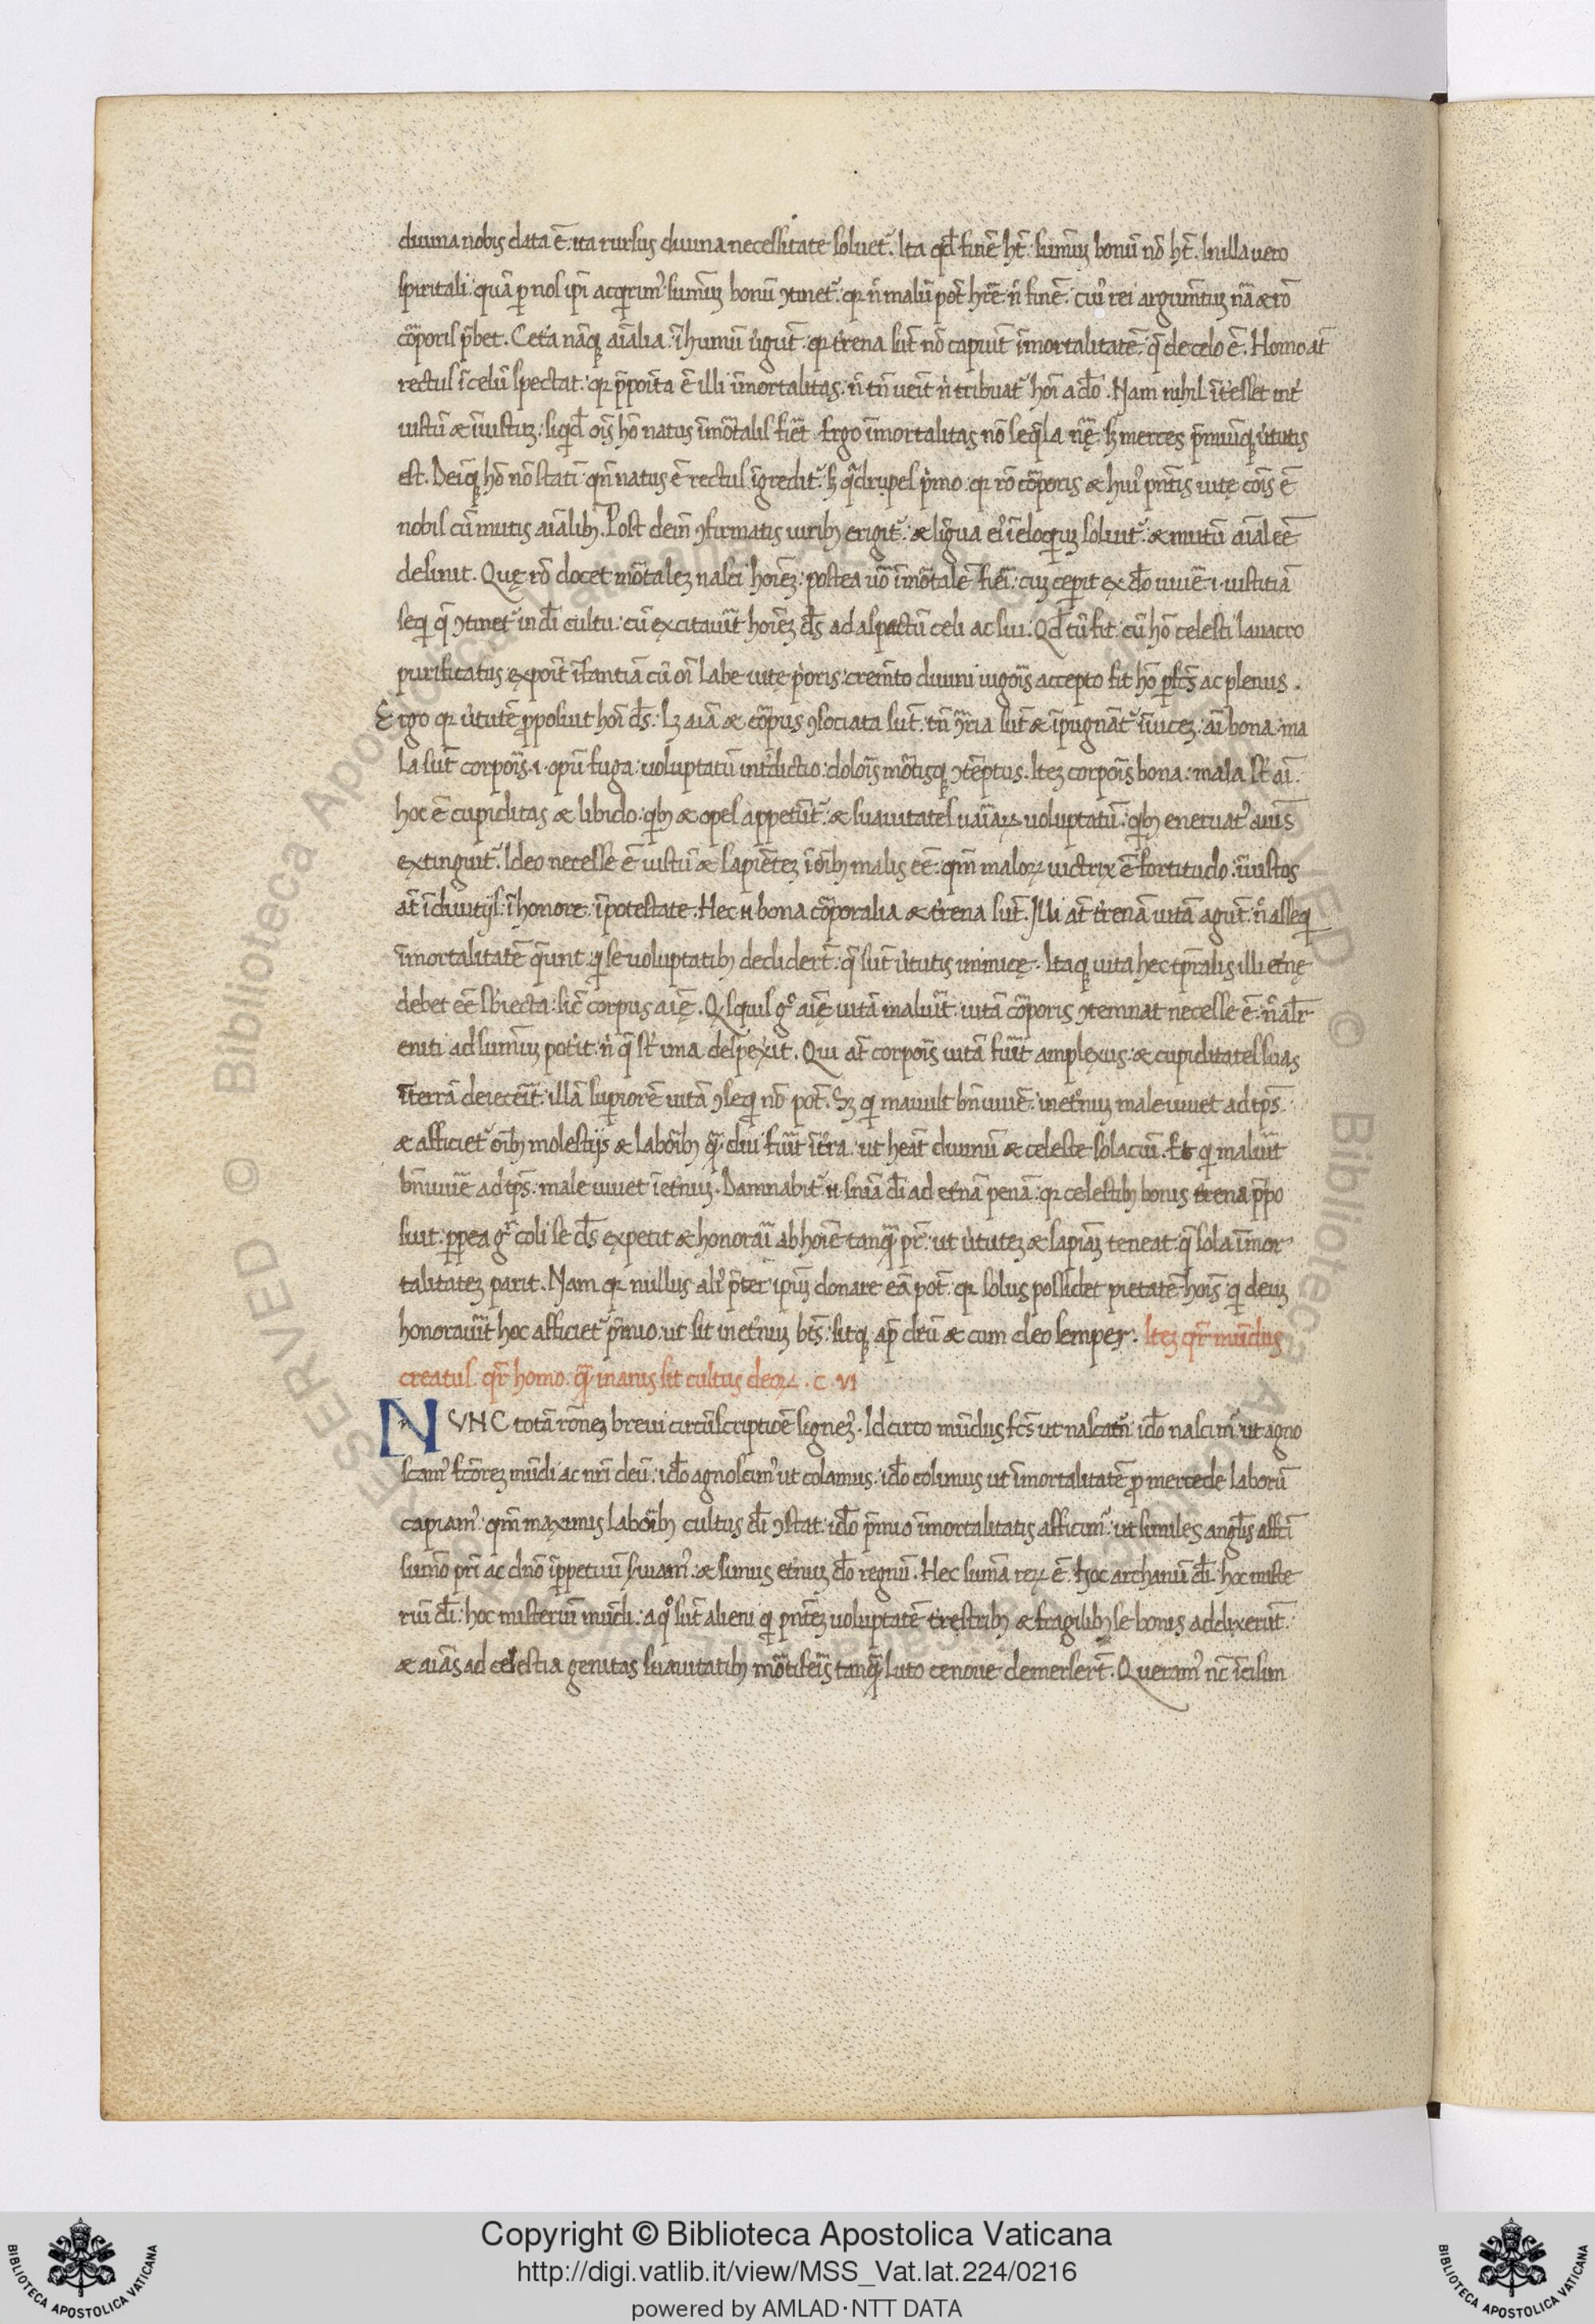 diuina nobis data ē. ita rursus diuina necessitate soluet᷑. Ita qđ finē ht̄. sumūɜ bonū nō ht̄. In illa uero
spiritali. quā ꝑ nos ip̄i acq̇rimꝰ. sumūɜ bonū ꝯtinet᷑. qꝛ n̄ malū pōt hr̄e n̄ finē. cuiꝰ rei argum̄tuɜ nā & rō
cōꝑoris p̄bet. Cet̄a nāqꝫ aīalia. ī humū u̇gūt. qꝛ t̄rena sūt nō capiūt īmortalitatē. q̄ de celo ē. Homo at̄
rectus ī celū spectat. qꝛ p̄poīta ē illi īmortalitas. n̄ tn̄ ueīt nı̇ tribuat᷑ hoī a do̅. Nam nihil īt̄esset int̄
iustū & īiustuɜ. siqđ oīs hō natus īmōtalis fiēt. Ergo īmortalitas nō seq̄la nę̄. sꝫ merces p̄miūqꝫ u̇tutis
est. Deiqꝫ hō nō statī. qn̄ natus ē rectus īgredit᷑. sꝫ q̄drupes ṗmo. qꝛ rō cōꝑoris & huiꝰ pn̄tis uitę cōis ē
nobis cū mutis aīalibꝫ. Post deīn ꝯfirmatis uiribꝫ erigit᷑. & līgua eiꝰ ī eloq̇uɜ soluit᷑. & mutū aīal eē
desinit. Quę rō docet mōtaleɜ nasci hoīeɜ. postea uō īmōtalē fieī. cuɜ ceperit ex do̅ uiuē. i. iustitiā
seq̇ q̄ ꝯtinet᷑ in dī cultu. cū excitauīt hoīeɜ ds̄ ad aspectū celi ac sui. Qđ tū fit. cū hō celesti lauacro
purificatus. expoīt īfantiā cū oī labe uitę ṗoris. crem̄to diuini uigoīs accepto fit hō ꝑfc̄s ac plenus.
Ergo qꝛ u̇tutē ꝓposuit hoī ds̄. Lꝫ aīa & cōꝑus ꝯsociata sūt. tn̄ ꝯ̄ria sūt & īpugnāt᷑ īuiceɜ. aī bona. ma
la sūt corpoīs. i. opū fuga. uoluptatū int̄dictio. doloīs mōtisqꝫ ꝯtēptus. Iteɜ corpoīs bona. mala st̄ aī.
hoc ē cupiditas & libido. qı̇bꝫ & opes appetūt᷑. & suauitates uaīaꝝ uoluptatū. qı̇bꝫ eneruatꝰ aīus
extinguit᷑. Ideo necesse ē iustū & sapiēteɜ ī oı̄bꝫ malis eē. qm̄ maloꝝ uictrix ē fortitudo. īiustos
at̄ ī diuitijs. ī honore. ī potestate. Hec n̄ bona cōꝑoralia & t̄rena sūt. Illi at̄ t̄renā uitā agūt. n̄ asseq̇
īmortalitatē q̄unt. q̇ se uoluptatibꝫ dedidert̄. q̄ sūt u̇tutis inimicę. Itaqꝫ uita hec tp̄ralis illi et̄nę
debet eē sb̄iecta. sic̄ corpus aīę. Qı̇squis gͦ aīę uitā maluīt. uitā cōꝑoris ꝯtemnat necesse ē. n̄ al̄r
eniti ad sumūɜ pot̄it. nı̇ q̄ st̄ ima despexit. Qui at̄ corpoīs uitā fuīt amplexus. & cupiditates suas
ī terrā deieceīt. illā suꝑiorē uitā ꝯseq̇ nō pōt. Sꝫ q̇ mauult bn̄ uiuē. in et̄nuɜ. male uiuet ad tp̄s.
& afficiet᷑ oı̄bꝫ molestijs & laboı̄bꝫ q̄ı̇diu fuīt ī t̄ra. ut heāt diuinū & celeste solaciū. Et q̇ maluīt
bn̄ uiuē ad tp̄s. male uiuet ī et̄nuɜ. Damnabit᷑ n̄ sn̄ia dī ad et̄nā penā. qꝛ celestibꝫ bonis t̄rena p̄po
suit. ꝓpt̄ea gͦ coli se ds̄ expetit & honoraī ab hoīe tanq̄ p̄r. ut u̇tuteɜ & sapiāɜ teneat. q̄ sola īmor
talitateɜ parit. Nam qꝛ nullus aliꝰ p̄ter ipsuɜ donare eā pōt. qꝛ solus possidet pietatē hoīs. q̇ deuɜ
honorauīt hoc afficiet᷑ p̄mio. ut sit in et̄nuɜ bt̄s. sitqꝫ ap̄ deū & cum deo semper. Iteɜ qr̄ mūdus
creatus. qr̄ homo. q̄ı̇ inanis sit cultus deoꝝ. C. VI
NVNC totā rōneɜ breui circūscriptiōe signeꝰ. Idcirco mūdus fc̄s ut nascamꝰ. ido̅ nascimꝰ ut agno
scamꝰ fctōreɜ mūdi ac nr̄i deū. ido̅ agnoscimꝰ ut colamus. ido̅ colimus ut īmortalitatē ꝓ mercede laborū
capiamꝰ. qm̄ maximis laboı̄bꝫ cultus dī ꝯstat. ido̅ p̄mio īmortalitatis afficimꝰ. ut similes angl̄is affc̄i
sumō pr̄i ac dn̄o īꝑpetuū s̄uiamꝰ. & simus et̄nuɜ do̅ regnū. Hec sumā reꝝ ē. hoc archanū dī. hoc miste
riū dī. hoc misteriū mūdi. a qͦ sūt alieni q̇ pn̄teɜ uoluptatē t̄restribꝫ & fragilibꝫ se bonis addixerūt.
& aīas ad celestia genitas suauitatibꝫ mōtifeīs tanq̄ luto cenoue demersert̄. Queramꝰ nc̄ īcisim
Copyright © Biblioteca Apostolica Vaticana
http://digi.vatlib.it/view/MSS_Vat.lat.224/0216
powered by AMLAD·NTT DATA
BIBLIOTECA APOSTOLICA VATICANA
BIBLIOTECA APOSTOLICA VATICANA